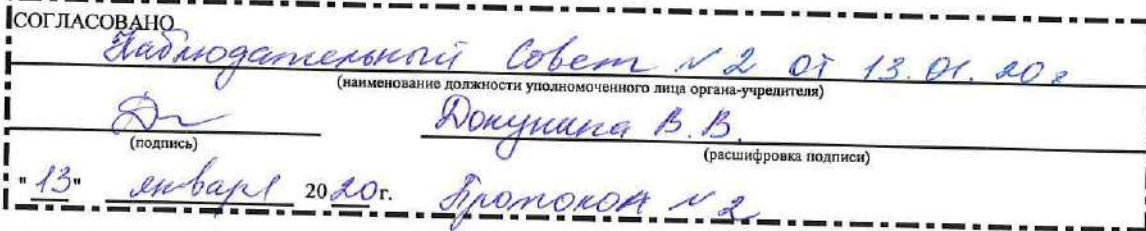 СОГЛАСОВАНО
Наблюдательный Совет № 2 от 13.01.20г
(наименование должности уполномоченного лица органа-учредителя)
Докунина В.В.
(подпись) (расшифровка подписи)
"13" января 2020г. Протокол № 2